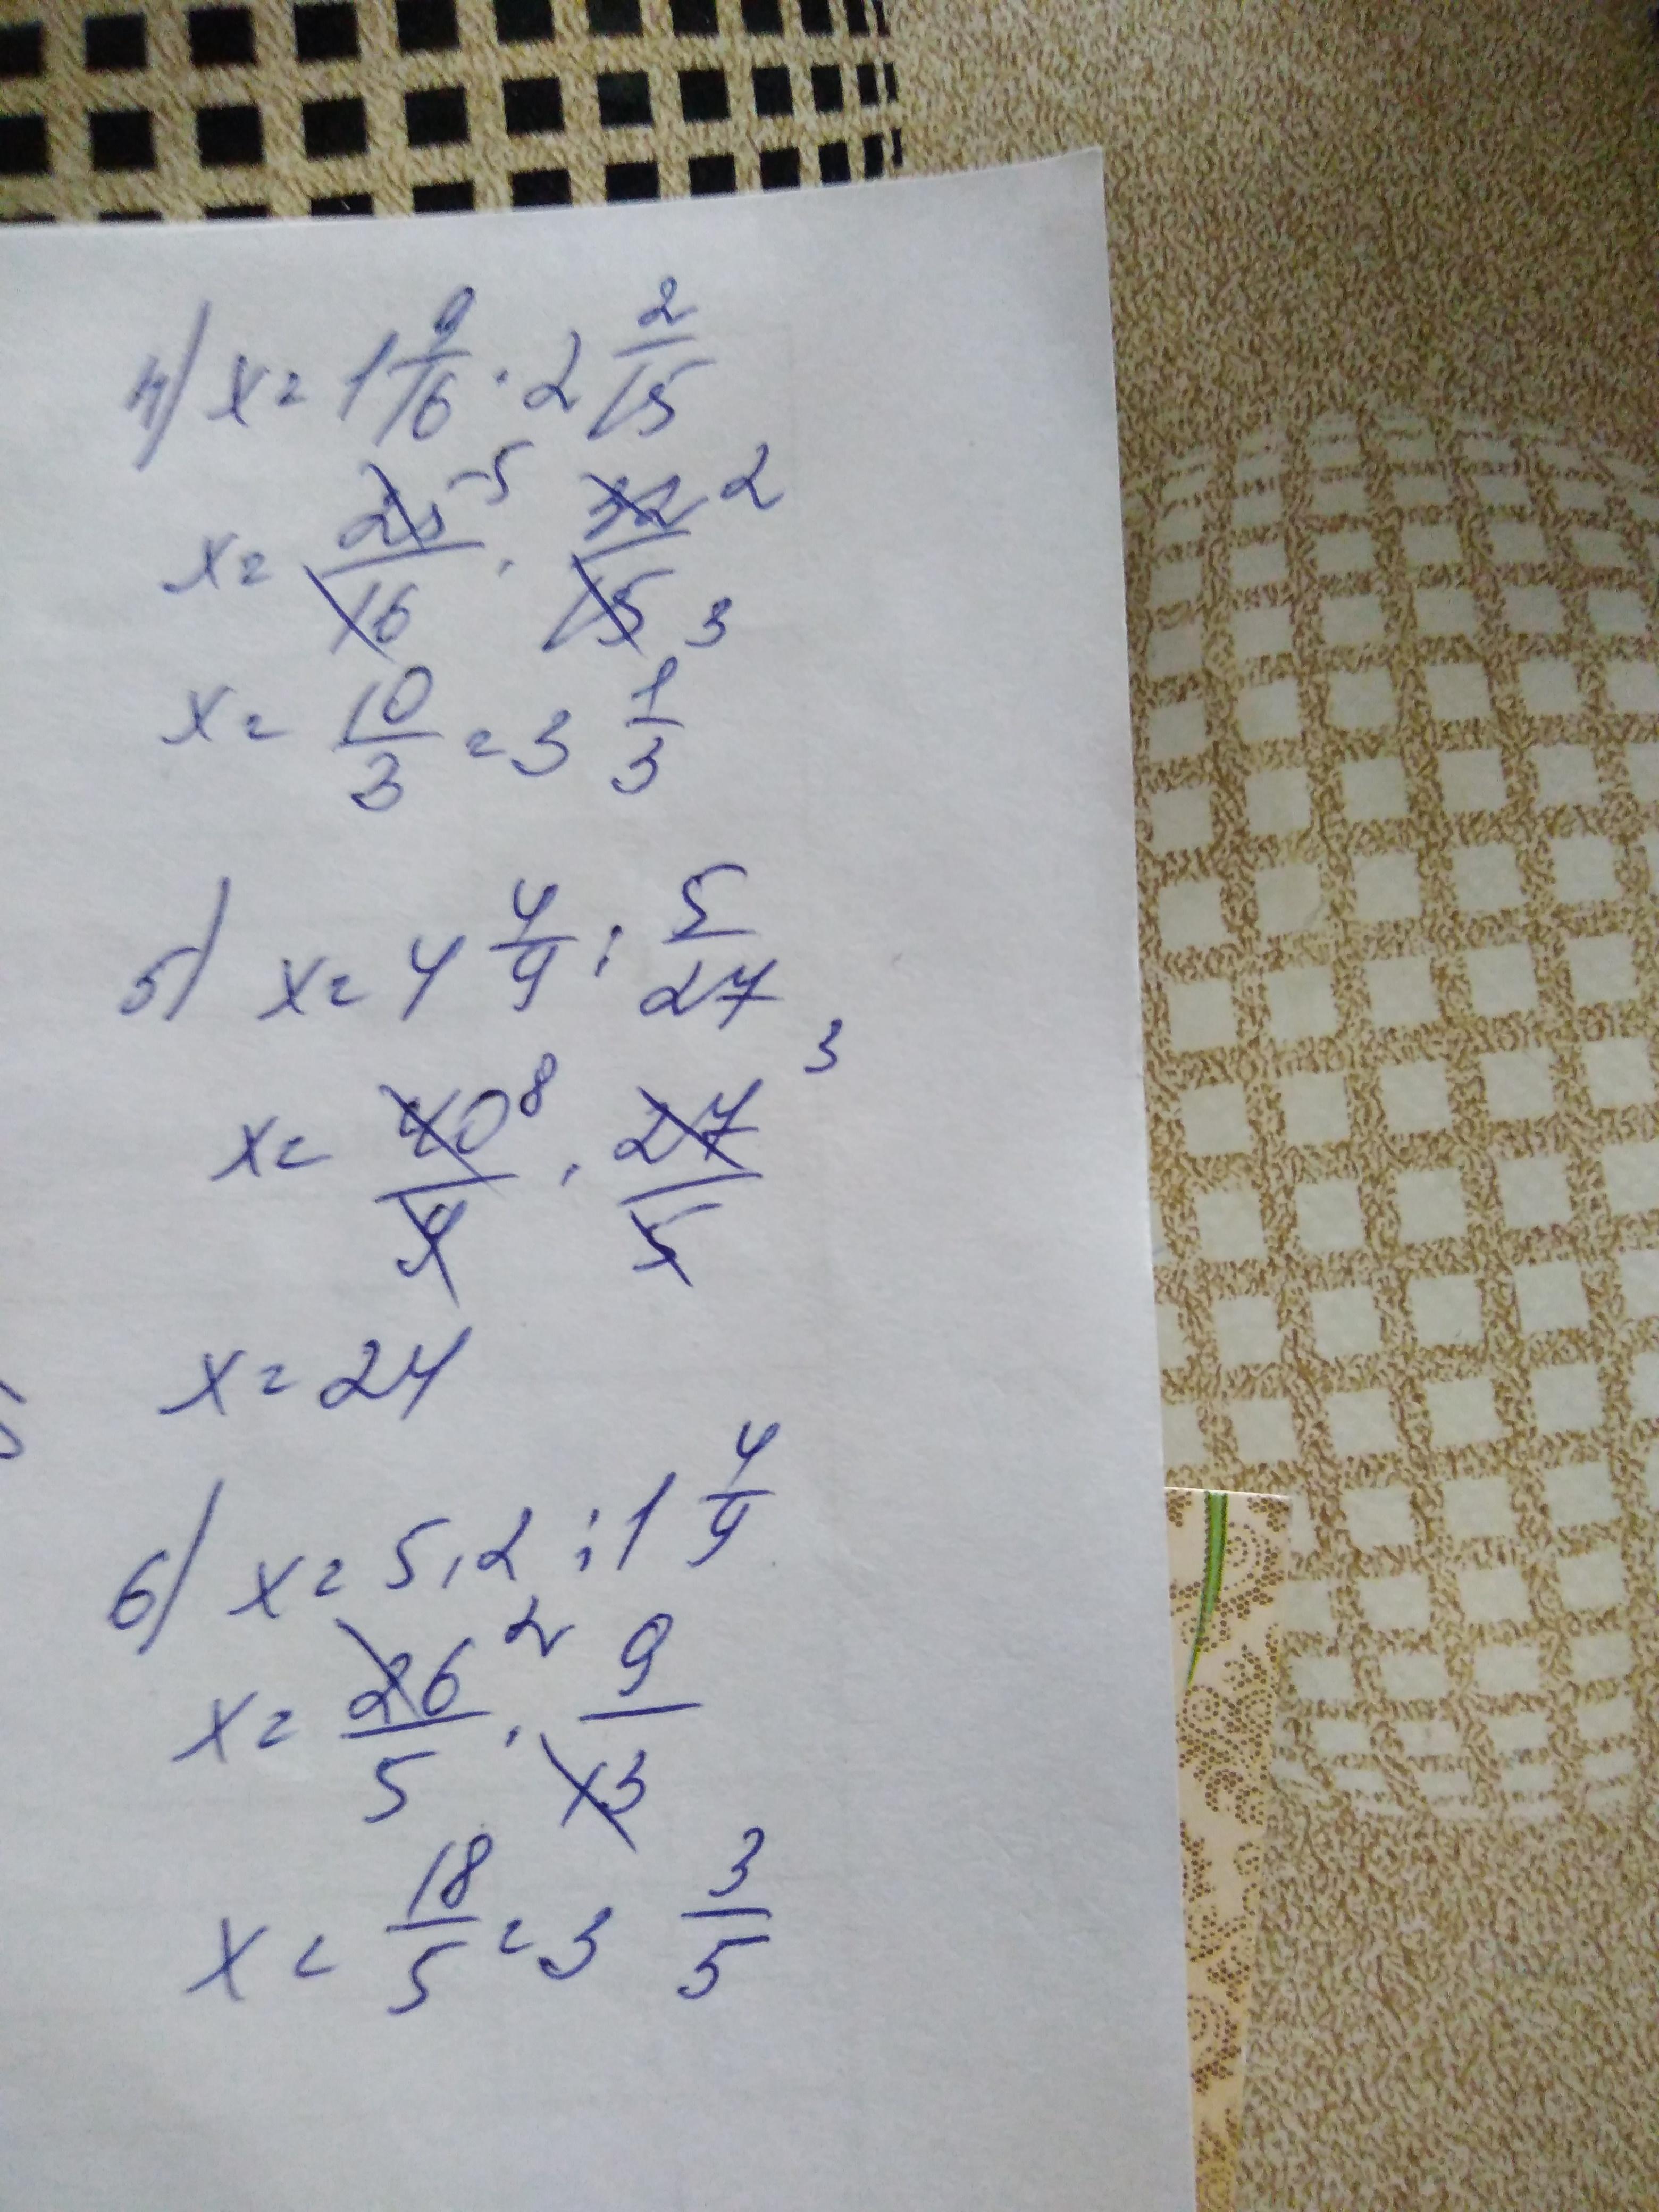 4) x = 1 9/16 · 2 2/15
x = 25/16 5 · 32/15 2 3
x = 10/3 = 3 1/3
5) x = 4 4/9 : 5/27
x = 40/9 8 · 27/5 3
x = 24
6) x = 5,2 : 1 4/9
x = 26/5 2 · 9/13
x = 18/5 = 3 3/5